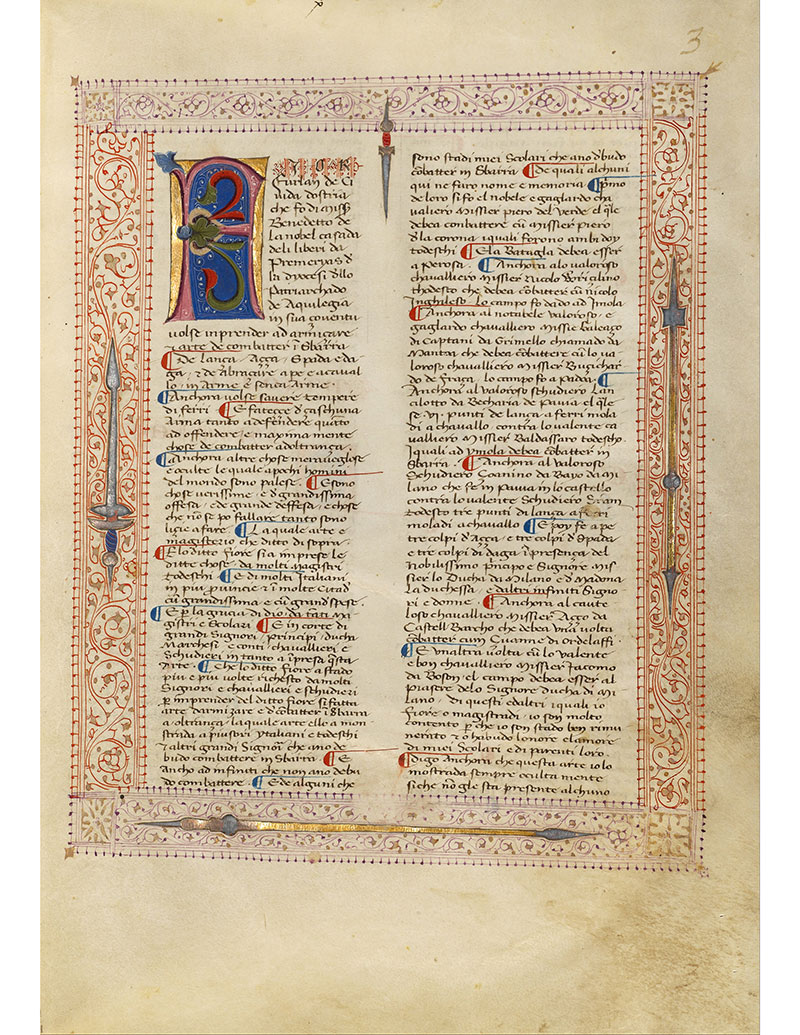 3
FIOR
Furlan de Ci
vida dostria
che fo di miss
Benedetto de
la nobel casada
deli liberi da
Premeryas d
la diocesi dllo
Patriarchado
de Aquilegia
in sua coventu
volse imprender ad armiçare
e arte de combatter ī Sbarra
¶De lança, Açça, Spada e da
ga, e de abraçare a pe e acaval
lo in arme e sença Arme.
¶Anchora volse savere tempere
di ferri ¶E fateççe d'çaschuna
Arma tanto a defendere quāto
ad offendere, e maxima mente
chose de combatter adoltrança.
¶Anchora altre chose meraveglose
e oculte le quale a pochi homini
del mondo sono palese. ¶E sono
chose verissime e d'grandissima
offesa, e de grande deffesa, e chose
che nō se pò fallare, tanto sono
ligie a fare. ¶La quale arte e
magisterio che ditto di sopra.
¶E lo ditto fiore si a imprese le
ditte chose da molti Magistri
todeschi ¶E di molti Italiani
in piu provincie e ī molte Citad
cū grandissima e cū grand spese
¶E p la gracia di dio da tāti Ma
gistri e Scolari ¶E in corte di
grandi Signori, Principi, ducha
Marchesi e conti, chavallieri e
Schudieri in tanto a ī presa questa
Arte. ¶Che lo ditto fiore a stado
piu e piu volte richesto da molti
Signori e chavallieri e schudieri
p imprender del ditto fiore si fatta
arte darmizare e d'cōbatter ī Sbarra
a oltrança, la quale arte ello a mon
strada a piusori ytaliani e todeschi
e altri grandi Signori che ano de
budo combattere in Sbarra. ¶E
Ancho ad infiniti che non ano debu
do combattere ¶E de alguni che
sono stadi miei Scolari che ano d'budo
cōbatter in Sbarra ¶De quali alchuni
qui ne faro nome e memoria ¶Pmo
de loro si fo el nobele e gagliardo cha
valiero Missier piero del verde el qle
debea combattere cū Missier Piero
d'la corona, i quali forono ambi doy
todeschi ¶E la Batagla debea esser
a Perosa. ¶Anchora a lo valoroso
chavalliero Missier Nicolo Voriçilino
thodesco che debea cōbatter cū nicolo
Inghileso. Lo campo fo dado ad Imola
¶Anchora al notabele valoroso, e
gagliardo chavalliero Missier Galeaço
di Captani da Grimello chiamado da
Mantoa che debea cōbattere cū lo va
loroso chavalliero Missier Buçichar
do de fraça. lo campo fo a Padoa.
Anchora al valoroso schudiero Lan
çilotto da Becharia de Pavia el qle
fe .vj. punti de lança a ferri mola
di a chavallo, contra lo valente ca
valliero Missier Baldassaro todescho
Iquali ad ymola debea cōbatter in
Sbarra ¶Anchora al valoroso
Schudiero Çoanino da Bayo da Mi
lano che fe in Pavia in lo castello
contra lo valente Schudiero Sram
todesco tre punti di lança a ferri
moladi a chavallo ¶E poy fe a pe
tre colpi d'Açça, e tre colpi d'Spada
e tre colpi di daga ī presença del
Nobilissimo prīcipo e Signore Mis
sier lo Ducha da Milano e d'Madona
la duchessa, e daltri infiniti Signo
ri e donne. ¶Anchora al caute
loso chavalliero Missier Aço da
Castell Barcho che debea vna volta
cōbatter cum Çuanne di ordelaffi
¶E vnaltra volta cū lo valente
e bon chavalliero Missier Jacomo
da Boson, el campo debea esser al
piasere delo Signore ducha di Mi
lano, di questi e daltri i quali io
fiore o magistradi io son molto
contento p che io son stado ben rimu
nerito e o habudo lonore e lamore
di miei Scolari e di parenti loro.
¶Digo Anchora che questa arte io lo
mostrada sempre oculta mente
siche nō gle sta presente alchuno